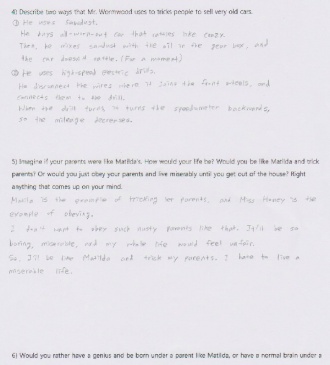 4) Describe two ways that Mr. Wormwood uses to tricks people to sell very old cars.
① He uses sawdust.
He buys all-worn-out car that rattles like crazy.
Then, he mixes sawdust with the oil in the gear box, and
the car doesn't rattle. (For a moment)
② He uses high-speed electric drills.
He disconnect the wires where it joins the front wheels, and
connects them to the drill.
When the drill turns, it turns the speedometer backwards,
so the mileage decreases.
5) Imagine if your parents were like Matilda's. How would your life be? Would you be like Matilda and trick
parents? Or would you just obey your parents and live miserably until you get out of the house? Right
anything that comes up on your mind.
Matilda is the example of tricking her parents, and Miss Honey is the
example of obeying.
I don't want to obey such nutty parents like that. It'll be so
boring, miserable, and my whole life would feel unfair.
So, I'll be like Matilda and trick my parents. I hate to live a
miserable life.
6) Would you rather have a genius and be born under a parent like Matilda, or have a normal brain under a